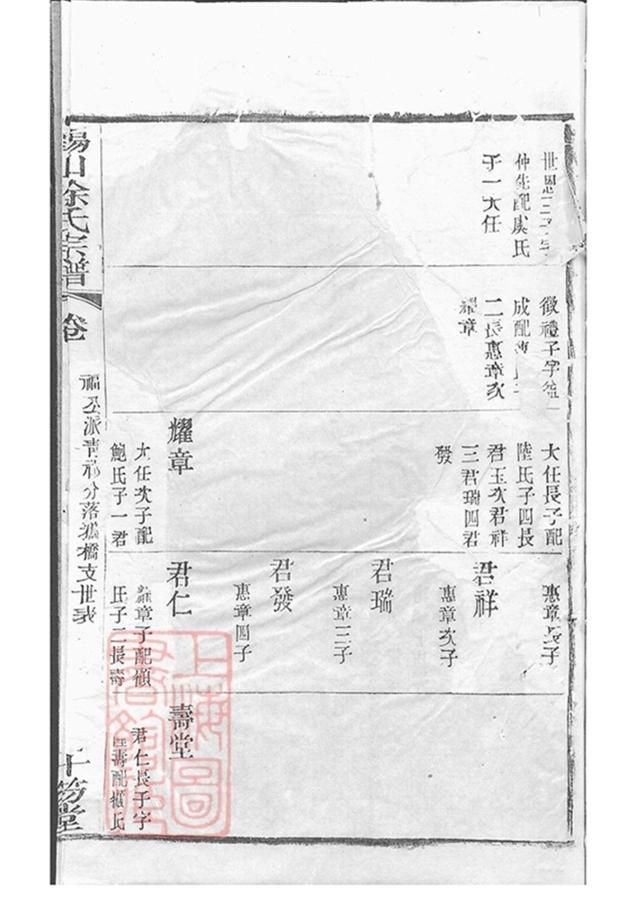 世恩三子字
仲先配虞氏
子一大任
徵禮子字
成配
二長惠章次
耀章
大任長子配
陸氏子四長
君玉次君祥
三君瑞四君
發
耀章
大任次子配
鮑氏子一君
惠章長子
君祥
惠章次子
君瑞
惠章三子
君發
惠章四子
君仁
耀章子配顧
氏子二長壽
壽堂
君仁長子字
壽配
氏
錫山徐氏宗譜
卷
福五派青祁分落狐橋支世表
上海圖
書館藏